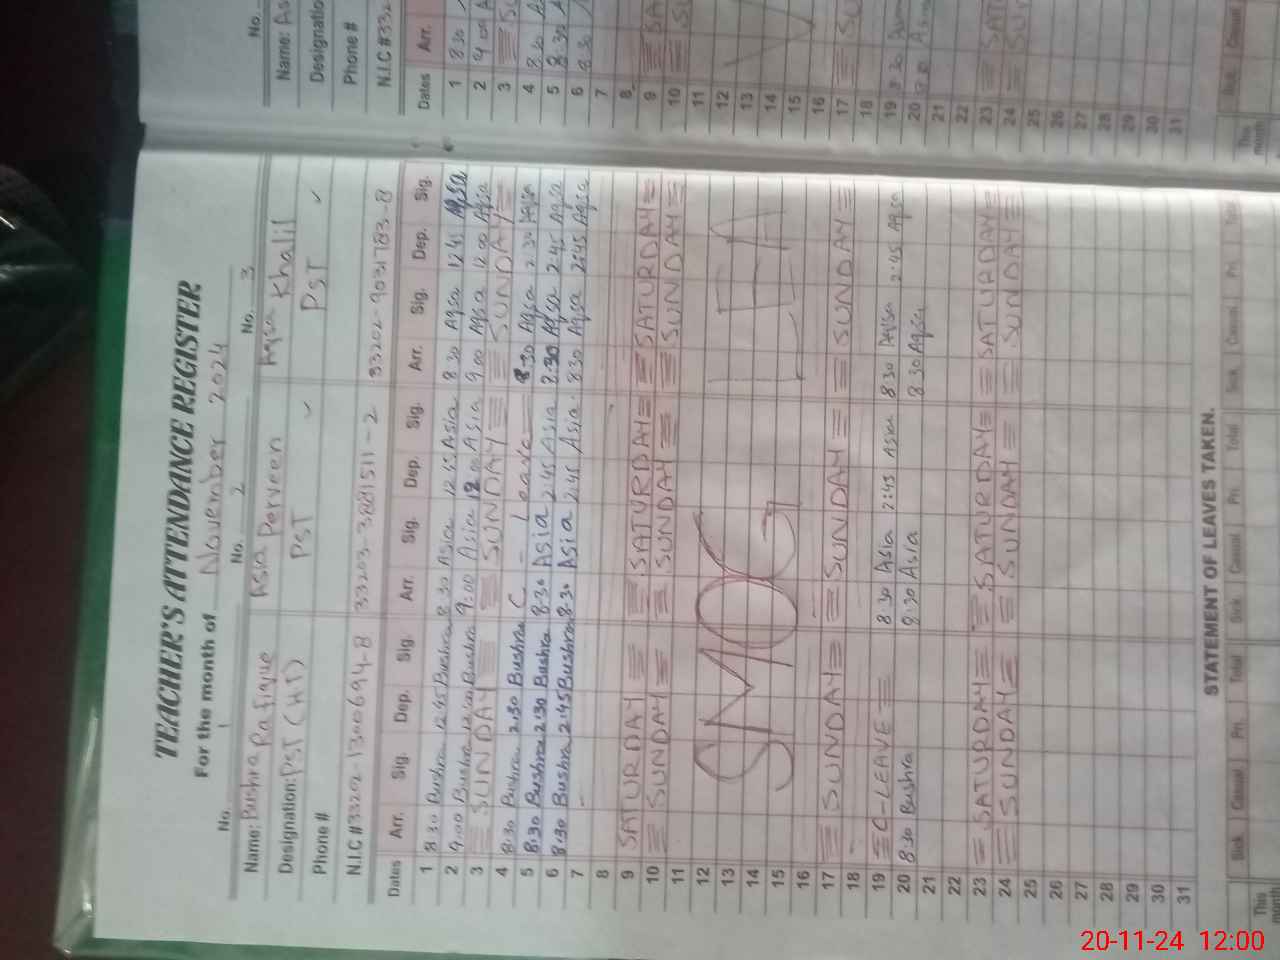 TEACHER'S ATTENDANCE REGISTER
For the month of November 2024
No. 1 No. 2 No. 3
Name: Bushra Rafique Asia Perveen Aqsa Khalil
Designation: PST (HT) PST PST
Phone #
N.I.C # 33202-1300694-8 33203-3881511-2 33202-9031783-8
Dates Arr. Sig. Dep. Sig. Arr. Sig. Dep. Sig. Arr. Sig. Dep. Sig.
1 8:30 Bushra 12:45 Bushra 8:30 Asia 12:45 Asia 8:30 Aqsa 12:45 Aqsa
2 9:00 Bushra 12:00 Bushra 9:00 Asia 12:00 Asia 9:00 Aqsa 12:00 Aqsa
3 SUNDAY SUNDAY SUNDAY
4 8:30 Bushra 2:30 Bushra C - Leave 8:30 Aqsa 2:30 Aqsa
5 8:30 Bushra 2:30 Bushra 8:30 Asia 2:45 Asia 8:30 Aqsa 2:45 Aqsa
6 8:30 Bushra 2:45 Bushra 8:30 Asia 2:45 Asia 8:30 Aqsa 2:45 Aqsa
7
8
9 SATURDAY SATURDAY SATURDAY
10 SUNDAY SUNDAY SUNDAY
11
12
13 SMOG
14
15
16
17 SUNDAY SUNDAY SUNDAY
18
19 C-LEAVE 8:30 Asia 2:45 Asia 8:30 Aqsa 2:45 Aqsa
20 8:30 Bushra 8:30 Asia 8:30 Aqsa
21
22
23 SATURDAY SATURDAY SATURDAY
24 SUNDAY SUNDAY SUNDAY
25
26
27
28
29
30
31
STATEMENT OF LEAVES TAKEN.
Sick Casual Pri. Total Sick Casual Pri. Total Sick Casual Pri. Total
This month
No.
Name: As
Designatio
Phone #
N.I.C # 332
Dates Arr.
1 8:30
2 9:00
3 SU
4 8:30
5 8:30
6 8:30
7
8
9 SA
10 SU
11
12
13
14
15
16
17 SU
18
19 8:30
20 8:30
21
22
23 SAT
24 SUN
25
26
27
28
29
30
31
This month Sick Casual
20-11-24 12:00